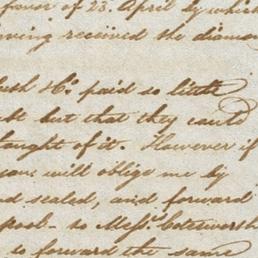 favor of 23. April by which
having received the diamon
paid so little
but that they could
thought of it. However if
will oblige me by
d sealed, and forward
pool - to Mess.rs
to forward the same